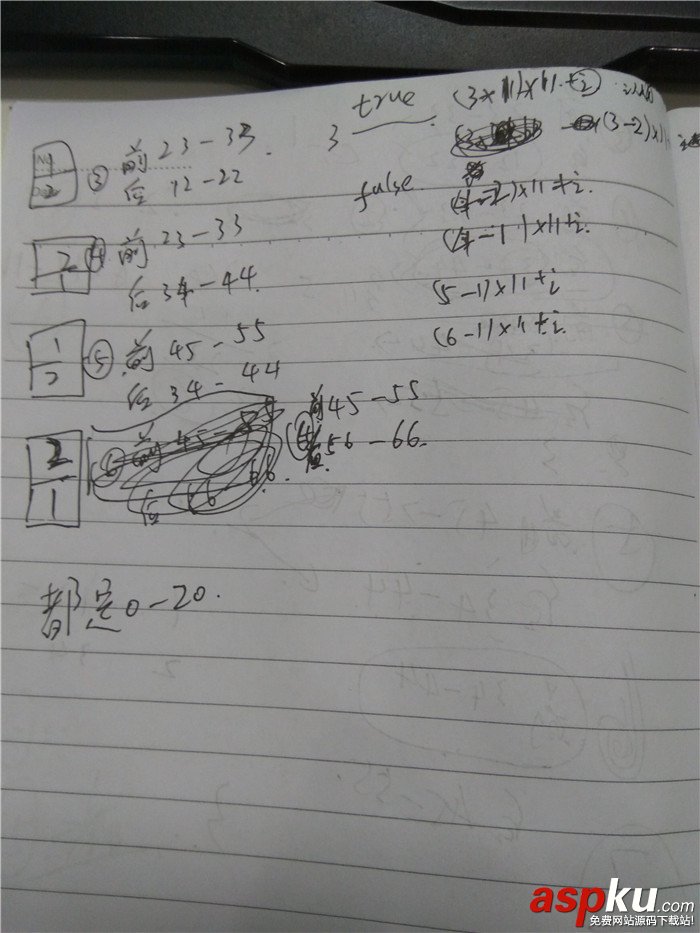 1
2
③ 前 23-33.
后 12-22
3 true (3×11)×11+i
(3-2)×11
false.
-2)×11+i.
-1)×11+i.
2
1
④ 前 23-33
后 34-44.
(5-1)×11+i
(6-1)×11+i.
1
2
⑤ 前 45-55
后 34-44
2
1
前 45-55
后 56-66.
都是0-20.
aspku.com
免费网站源码下载站!